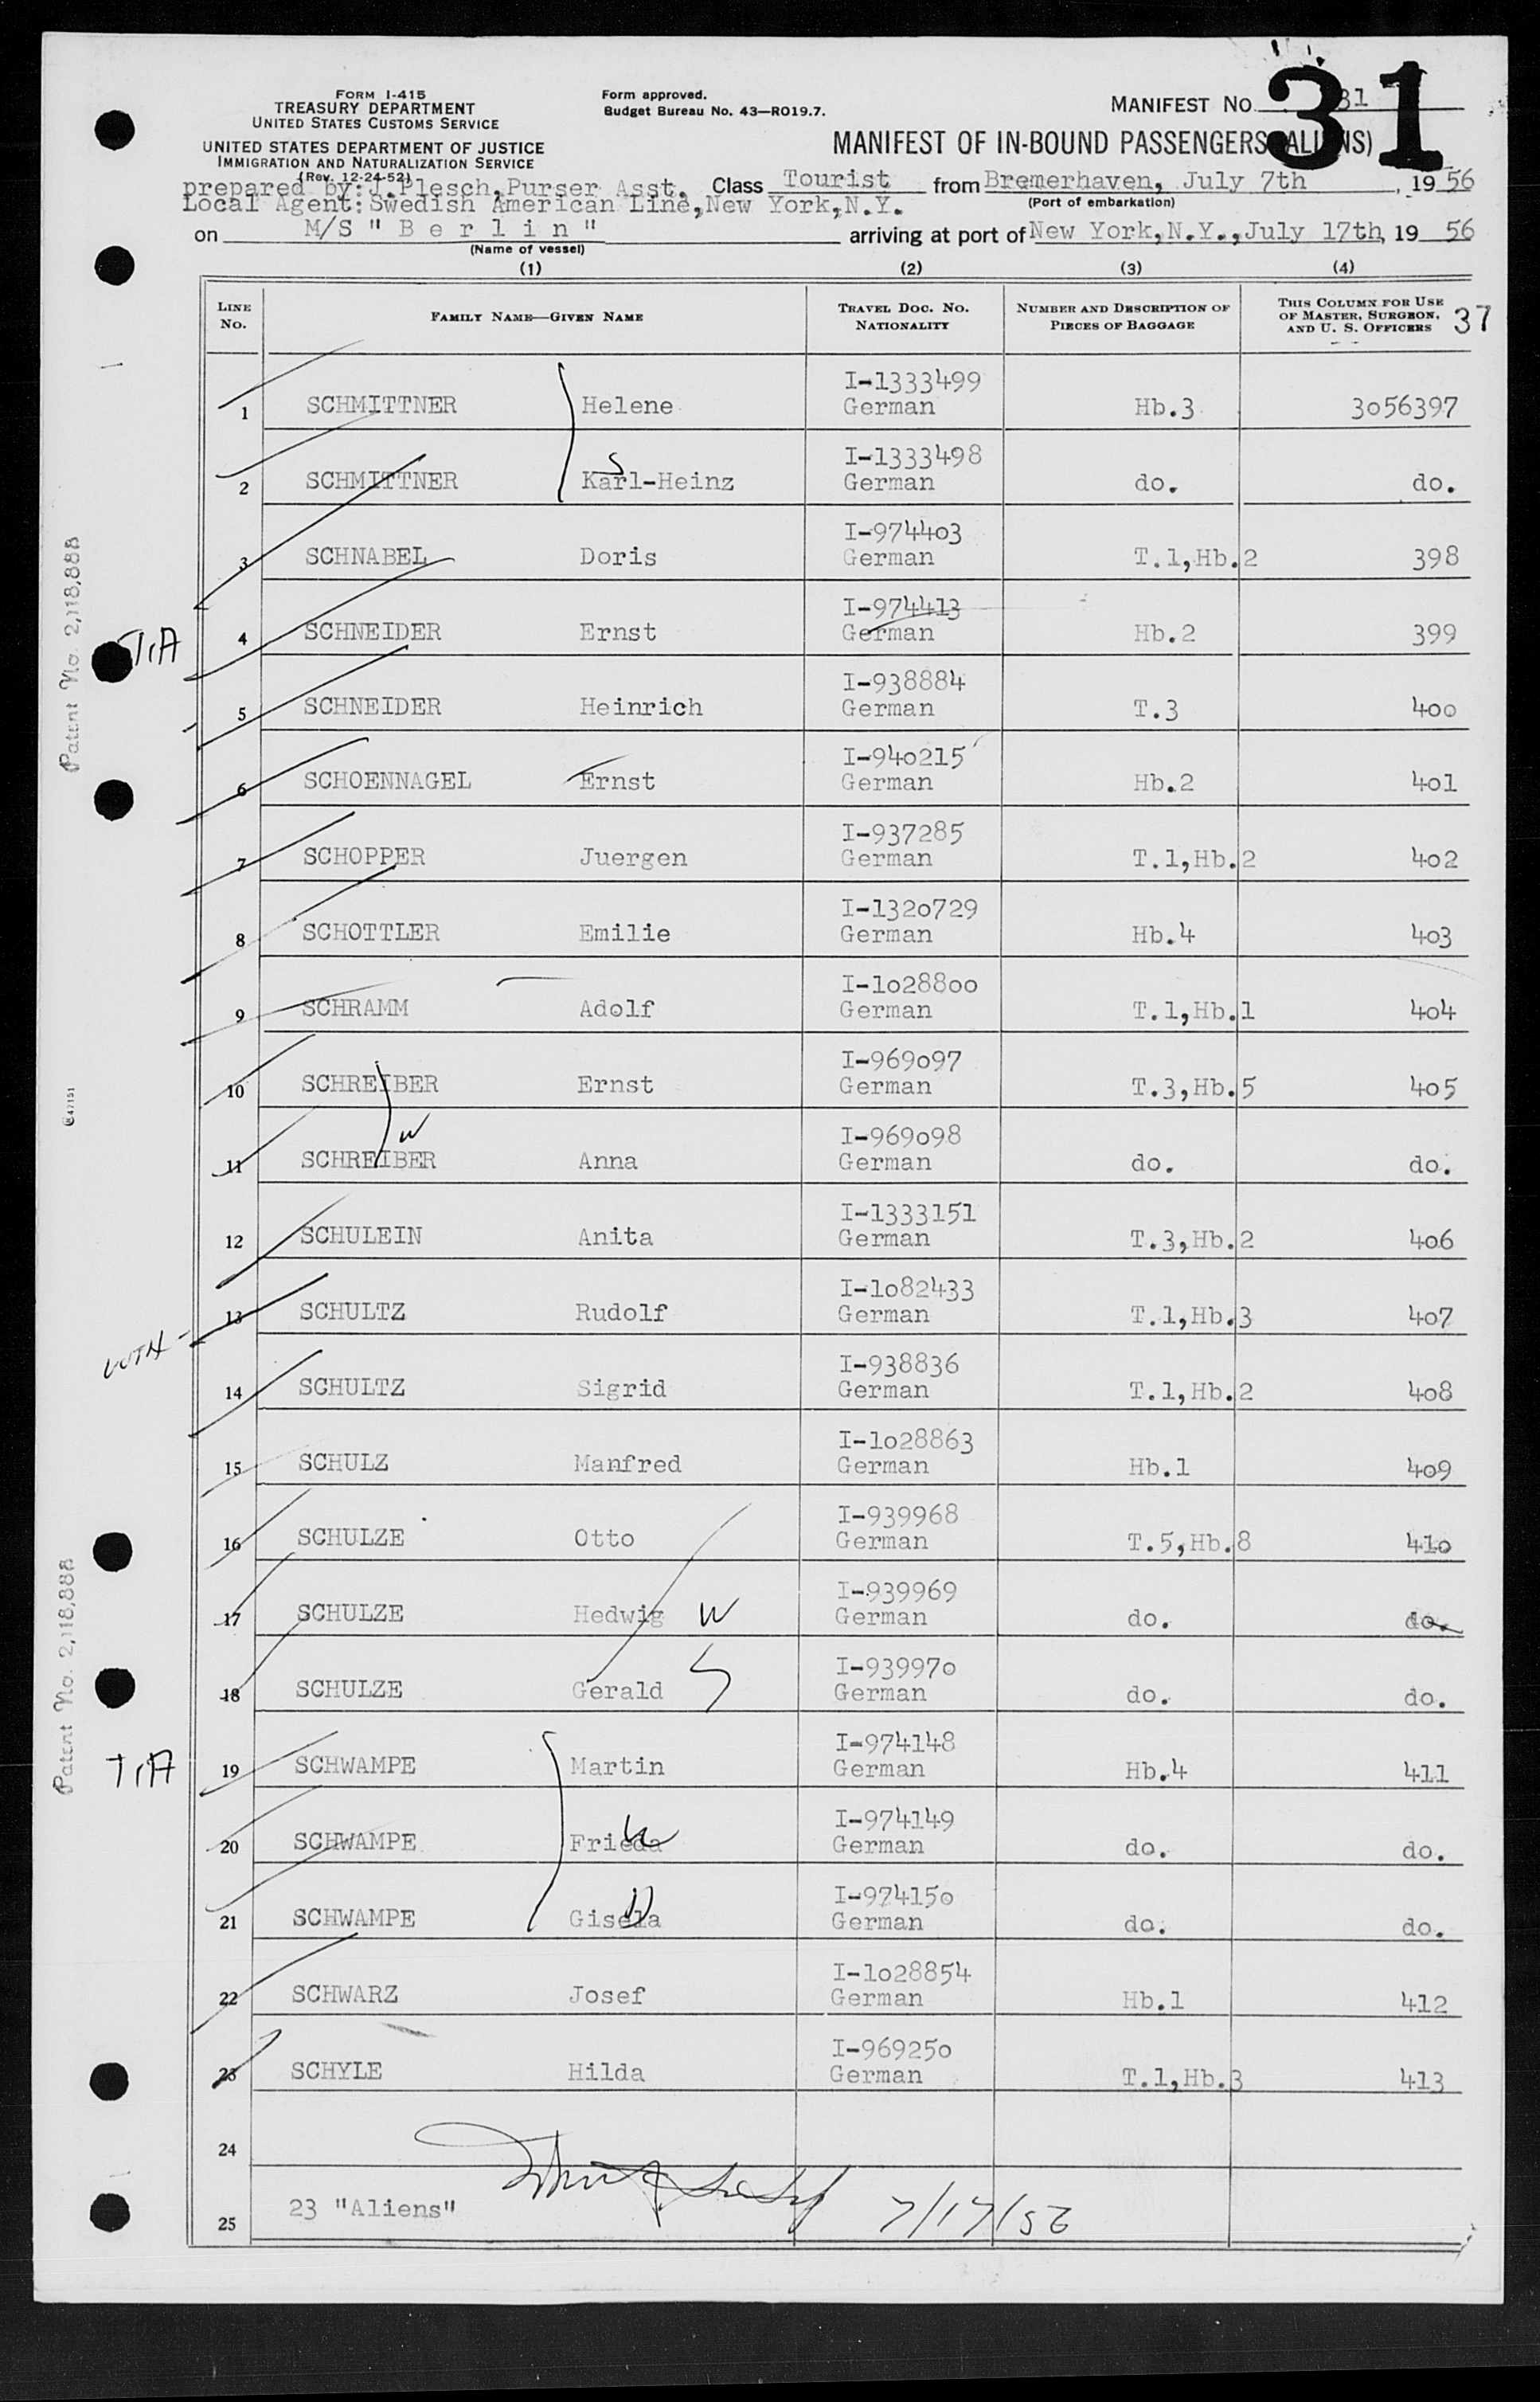 FORM I-415
TREASURY DEPARTMENT
UNITED STATES CUSTOMS SERVICE
UNITED STATES DEPARTMENT OF JUSTICE
IMMIGRATION AND NATURALIZATION SERVICE
(Rev. 12-24-52)
Form approved.
Budget Bureau No. 43—RO19.7.
MANIFEST NO. 31
31
MANIFEST OF IN-BOUND PASSENGERS (ALIENS)
prepared by: J.Plesch, Purser Asst. Class Tourist from Bremerhaven, July 7th, 1956
(Port of embarkation)
Local Agent: Swedish American Line, New York, N.Y.
on M/S "B e r l i n" arriving at port of New York, N.Y., July 17th, 19 56
(Name of vessel)
(1) (2) (3) (4)
LINE No. FAMILY NAME—GIVEN NAME TRAVEL DOC. NO. NATIONALITY NUMBER AND DESCRIPTION OF PIECES OF BAGGAGE THIS COLUMN FOR USE OF MASTER, SURGEON, AND U. S. OFFICERS 37
I-1333499
1 SCHMITTNER Helene German Hb.3 3056397
I-1333498
2 SCHMITTNER Karl-Heinz S German do. do.
I-974403
3 SCHNABEL Doris German T.1,Hb.2 398
I-974413
T,A 4 SCHNEIDER Ernst German Hb.2 399
I-938884
5 SCHNEIDER Heinrich German T.3 400
I-940215
6 SCHOENNAGEL Ernst German Hb.2 401
I-937285
7 SCHOPPER Juergen German T.1,Hb.2 402
I-1320729
8 SCHOTTLER Emilie German Hb.4 403
I-1028800
9 SCHRAMM Adolf German T.1,Hb.1 404
I-969097
10 SCHREIBER Ernst German T.3,Hb.5 405
I-969098
11 SCHREIBER W Anna German do. do.
I-1333151
12 SCHULEIN Anita German T.3,Hb.2 406
I-1082433
13 SCHULTZ Rudolf German T.1,Hb.3 407
I-938836
14 SCHULTZ Sigrid German T.1,Hb.2 408
I-1028863
15 SCHULZ Manfred German Hb.1 409
I-939968
16 SCHULZE Otto German T.5,Hb.8 410
I-939969
17 SCHULZE Hedwig W German do. do.
I-939970
18 SCHULZE Gerald S German do. do.
I-974148
T,A 19 SCHWAMPE Martin German Hb.4 411
I-974149
20 SCHWAMPE Frieda W German do. do.
I-974150
21 SCHWAMPE Gisela D German do. do.
I-1028854
22 SCHWARZ Josef German Hb.1 412
I-969250
23 SCHYLE Hilda German T.1,Hb.3 413
24
25 23 "Aliens" 7/17/56
Patent No. 2,118,888
Patent No. 2,118,888